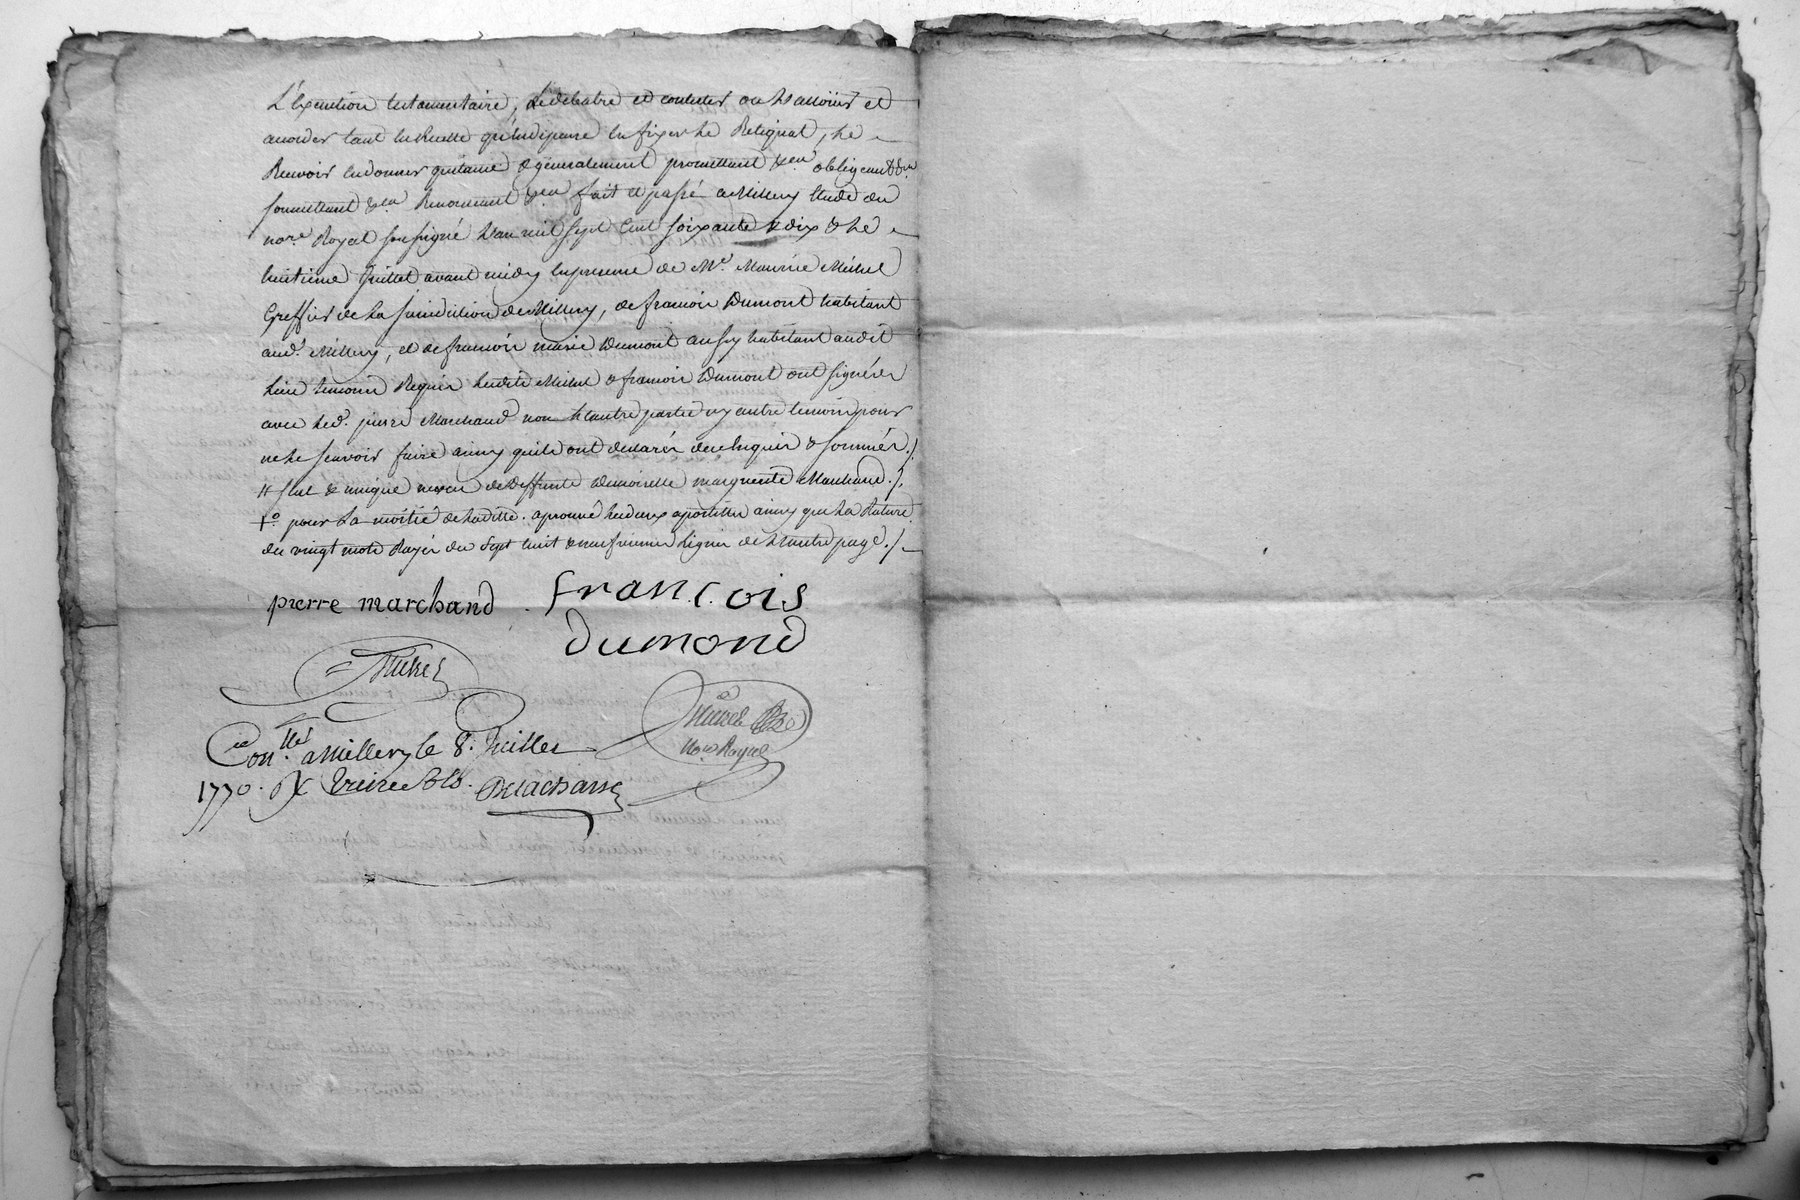 L'Exécution testamentaire, Le debatre et contester ou Lallouer et
accorder tant En Recette qu'En dépense En fixer Le Reliquat, Le
Recevoir En donner quitance & généralement promettant &ca obligeant &ca
soumettant &ca Renonceant &ca fait et passé a Millery Etude du
nore Royal soussigné L'an mil sept Cent soixante & dix & Le
huitieme Juillet avant midy En presence de Me Maurice Michel
Greffier de La jurisdiction de Millery, de françois Dumont habitant
aud. Millery, et de françois marie Dumont aussy habitant audit
Lieu temoins Requis Lesdits Michel & françois Dumont ont signé
avec Led. pierre Marchand non L'autre partie ny autre temoin pour
ne Le sçavoir faire ainsy qu'ils ont declarés de ce Enquis & sommés./.
# seul & unique neveu de deffunte demoiselle marguerite Marchand./.
+o pour La moitié de Laditte. aprouvé Les deux apostilles ainsy que La Rature
des vingt mots Rayés des sept huit & neufviemes Lignes de L'autre page./.
pierre marchand
françois
dumond
Michel
Michel
Nore Royal
Conllé a Millery le 8. Juillet
1770. R Treize sols. Delachasse